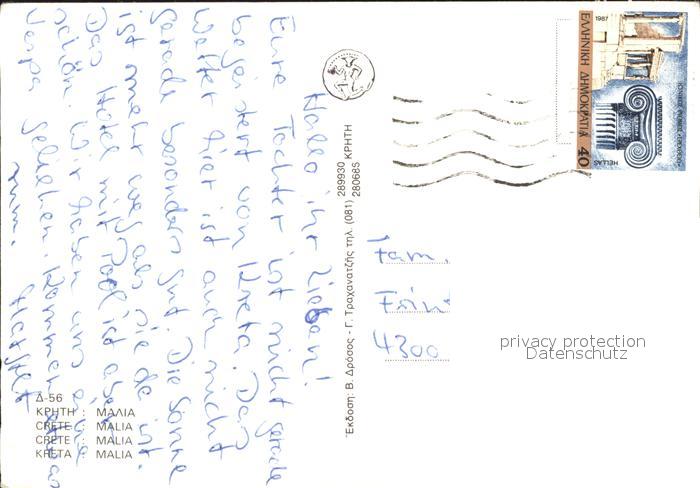 Hallo ihr Lieben!
Eure Tochter ist nicht gerade
begeistert von Kreta. Das
Wetter hier ist auch nicht
gerade besonders gut. Die Sonne
ist mehr weg als sie da ist.
Das Hotel mit Pool ist aber
schön. Wir haben uns eine
Vespa geliehen. Kommen
rum.
Δ-56
ΚΡΗΤΗ : ΜΑΛΙΑ
CRETE : MALIA
CRETE : MALIA
KRETA : MALIA
Έκδοση: Β. Δρόσος - Γ. Τραχανατζής τηλ. (081) 289930 ΚΡΗΤΗ
280685
1987
ΕΛΛΗΝΙΚΗ ΔΗΜΟΚΡΑΤΙΑ 40
HELLAS
Fam.
4300
privacy protection
Datenschutz